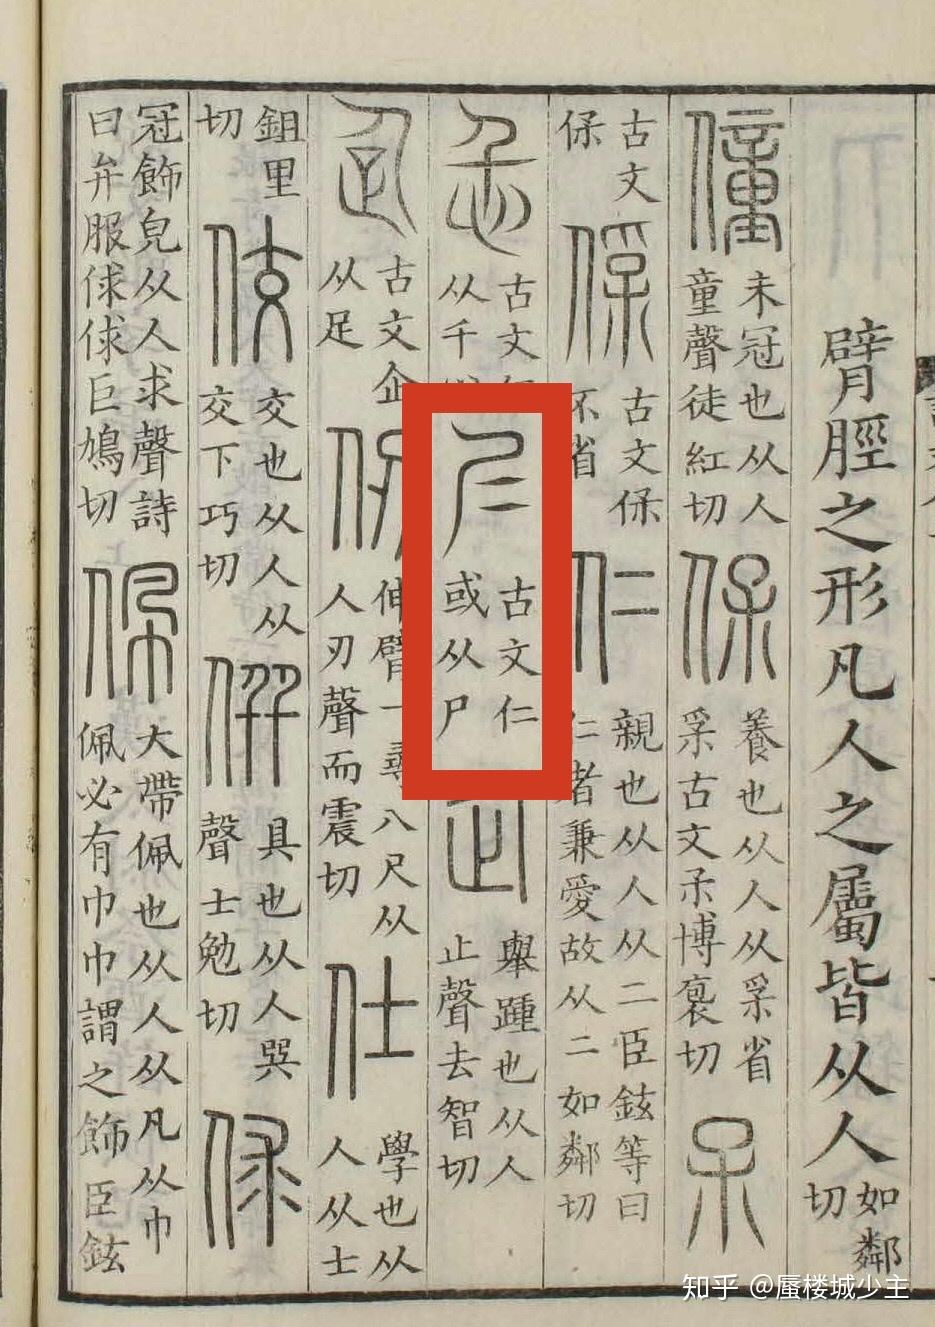 臂脛之形凡人之屬皆从人如鄰切
僮未冠也从人童聲徒紅切保養也从人从𤓽省𤓽古文孚博褒切𠈃
古文保俘古文保不省仁親也从人从二臣鉉等曰仁者兼愛故从二如鄰切
忎古文从千𡰥古文仁或从尸企舉踵也从人止聲去智切
𠈮古文企从足仞伸臂一尋八尺从人刃聲而震切仕學也从人从士
鉏里切佼交也从人从交下巧切僎具也从人巽聲士勉切俅
冠飾皃从人求聲詩曰弁服俅俅巨鳩切佩大帶佩也从人从凡从巾佩必有巾巾謂之飾臣鉉
知乎 @蜃楼城少主